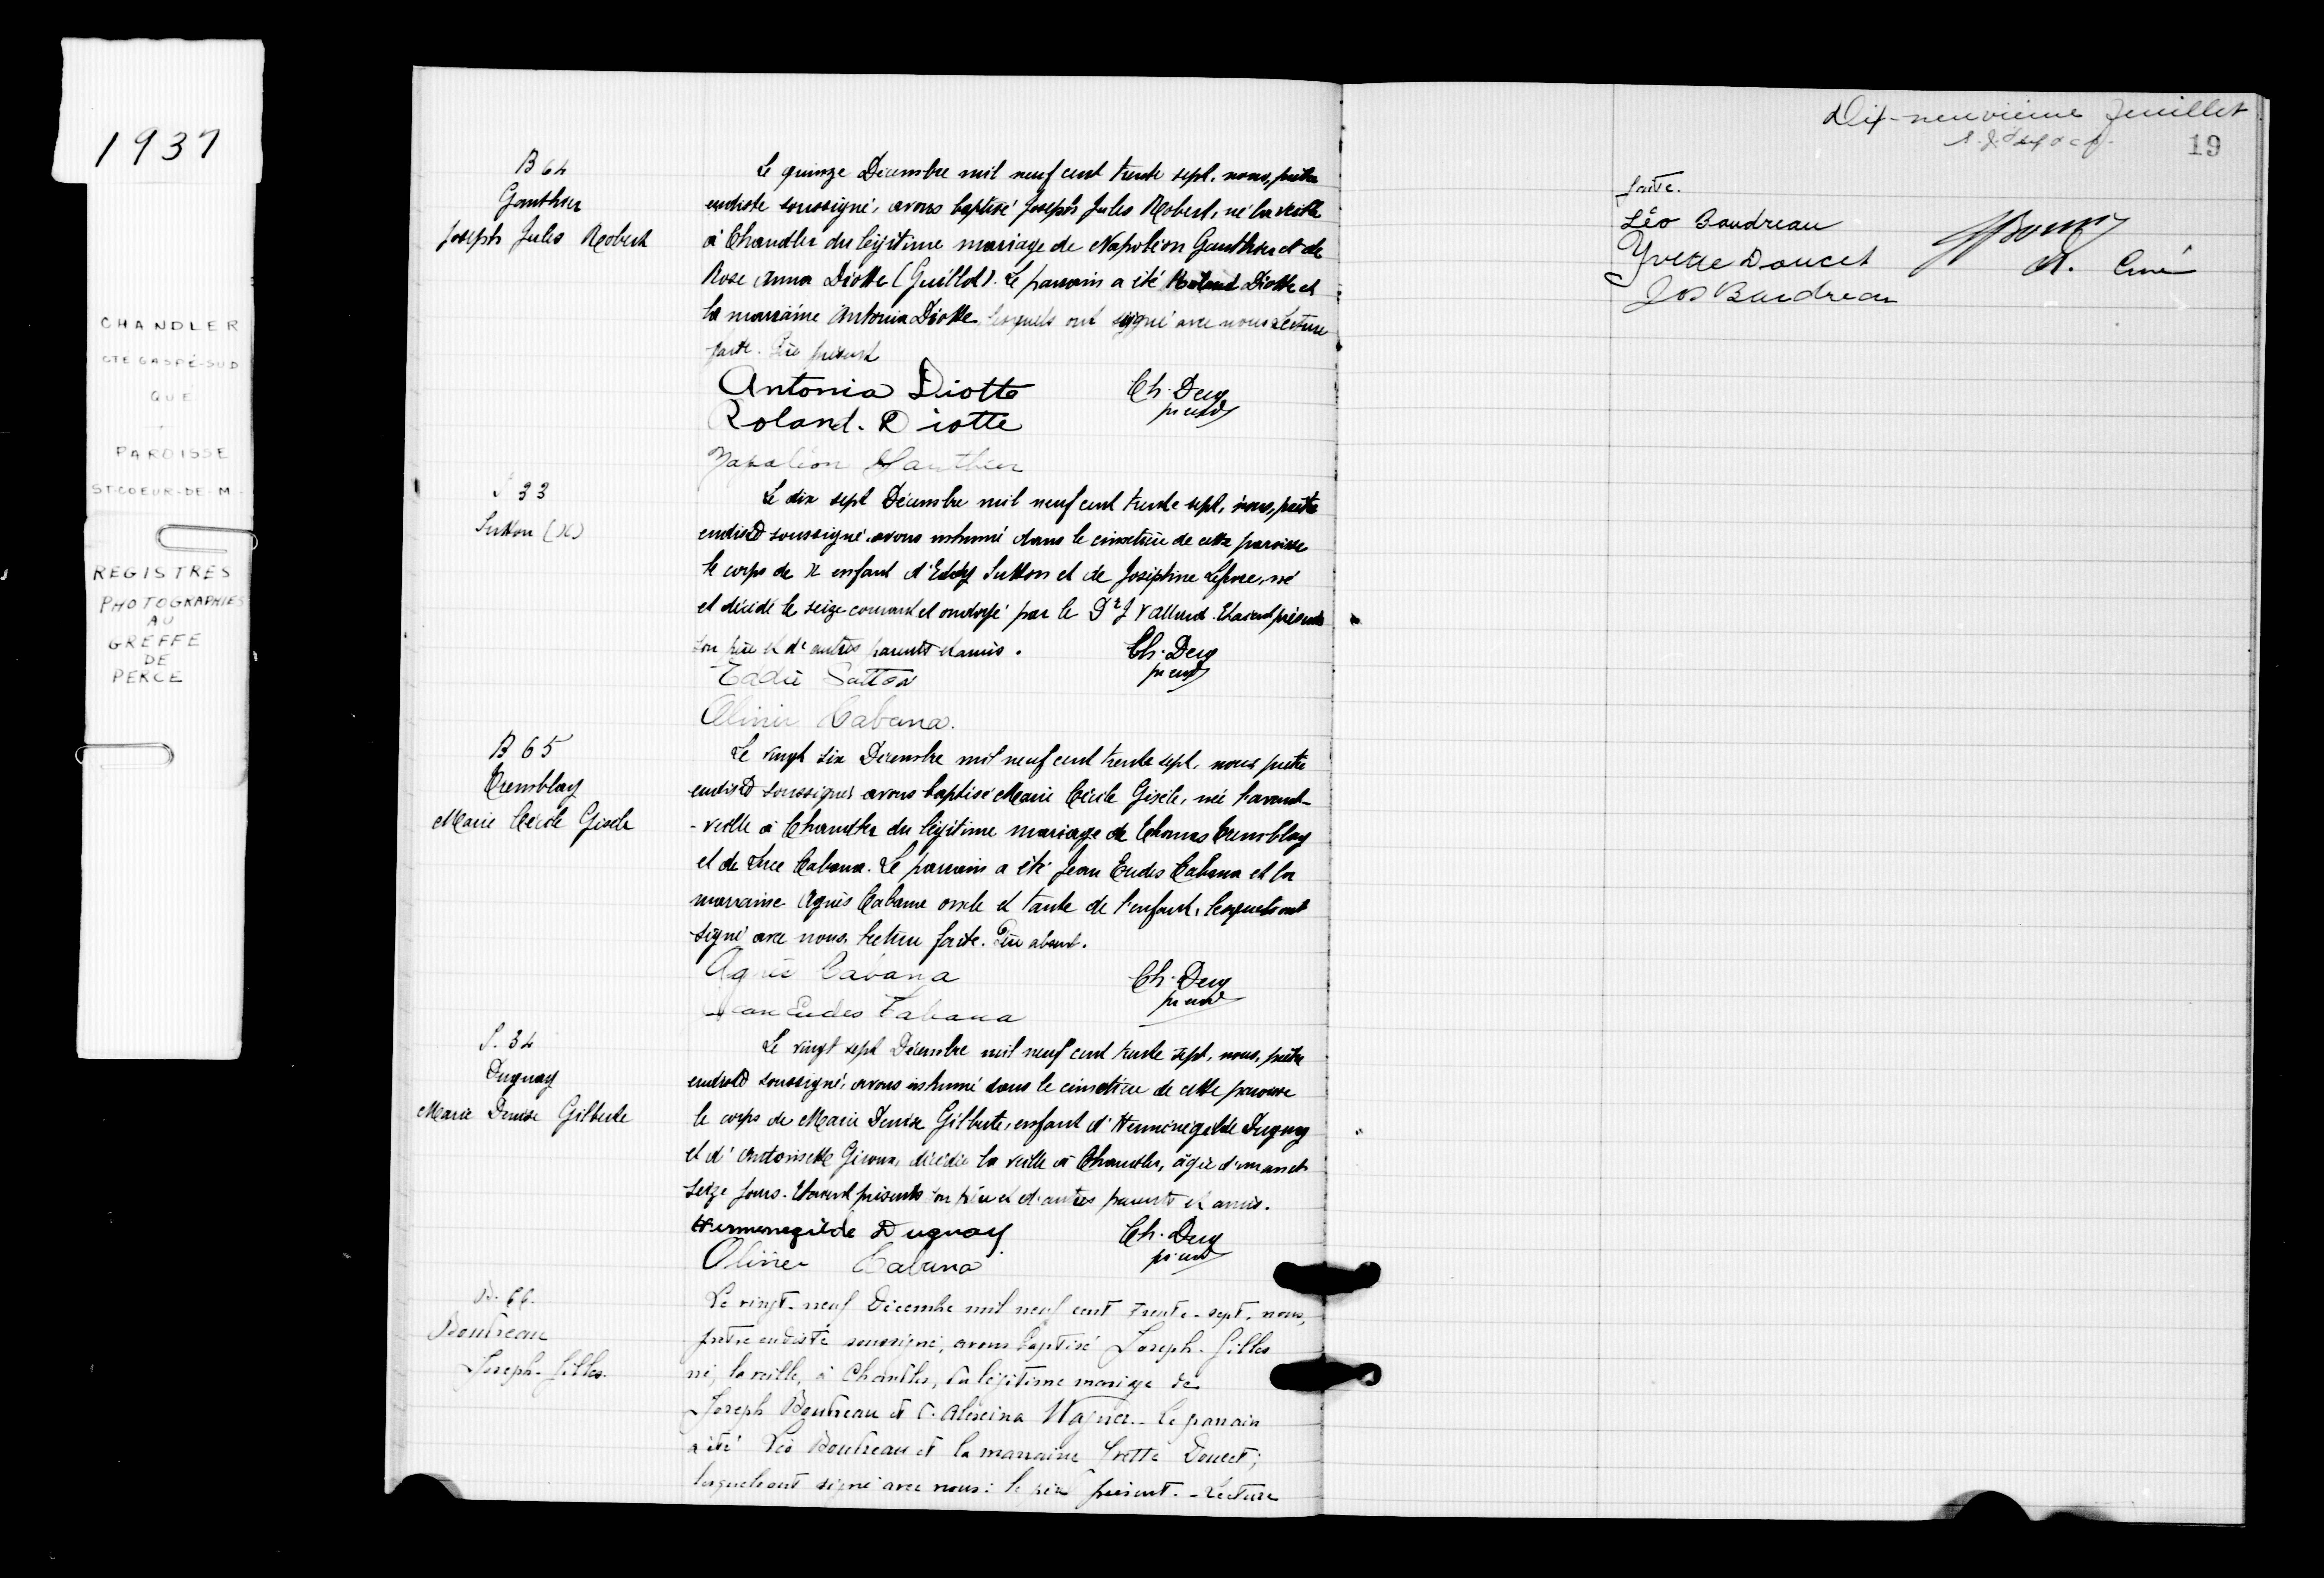 1937
CHANDLER
CTÉ GASPÉ-SUD
QUÉ
-
PAROISSE
ST-COEUR-DE-M.
REGISTRES
PHOTOGRAPHIES
AU
GREFFE
DE
PERCE
B 64
Gauthier
Joseph Jules Robert
Le quinze Décembre mil neuf cent trente sept, nous, prêtre
endisté soussigné, avons baptisé Joseph Jules Robert, né la veille
à Chandler du légitime mariage de Napoléon Gauthier et de
Rose Anna Diotte (Guillot). Le parrain a été Roland Diotte et
la marraine Antonia Diotte, lesquels ont signé avec nous. Lecture
faite. Père présent
Antonia Diotte Ch. Dery
Roland. Diotte
Napoléon Gauthier
S 33
Sutton (X)
Le dix sept Décembre mil neuf cent trente sept, nous, prêtre
endisté soussigné, avons inhumé dans le cimetière de cette paroisse
le corps de X enfant d'Eddy Sutton et de Joséphine, né
et décédé le seize courant et ondoyé par le Dr J. Étaient présents
son père et d'autres parents et amis. Ch. Dery
Eddie Sutton
Olivier Cabana.
B 65
Tremblay
Marie Cécile Gisèle
Le vingt six Décembre mil neuf cent trente sept, nous prêtre
endisté soussigné avons baptisé Marie Cécile Gisèle, née l'avant-
-veille à Chandler du légitime mariage de Thomas Tremblay
et de Luce Cabana. Le parrain a été Jean Eudes Cabana et la
marraine Agnès Cabana oncle et tante de l'enfant, lesquels ont
signé avec nous. Lecture faite. Père absent.
Agnès Cabana Ch. Dery
Jean Eudes Cabana
S. 34
Duguay
Marie Denise Gilberte
Le vingt sept Décembre mil neuf cent trente sept, nous, prêtre
endisté soussigné, avons inhumé dans le cimetière de cette paroisse
le corps de Marie Denise Gilberte, enfant d'Herménégilde Duguay
et d'Antoinette Giroux, décédée la veille à Chandler, âgée d'un an et
seize jours. Étaient présents son père et d'autres parents et amis.
Hermenegilde Duguay Ch. Dery
Olivier Cabana
B. 66.
Boudreau
Joseph-Gilles.
Le vingt-neuf Décembre mil neuf cent trente-sept, nous,
prêtre endisté soussigné, avons baptisé Joseph-Gilles
né, la veille, à Chandler, du légitime mariage de
Joseph Boudreau et C. Alexina Wagner. Le parrain
a été Léo Boudreau et la marraine Yvette Doucet;
lesquels ont signé avec nous: le père présent. - Lecture
Dix-neuvième feuillet
19
faite.
Léo Boudreau
Yvette Doucet Curé
Jos Boudreau